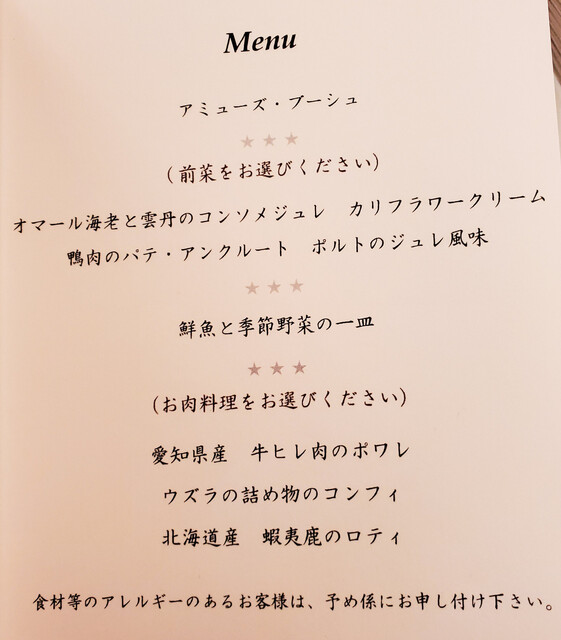 Menu
アミューズ・ブーシュ
★ ★ ★
(前菜をお選びください)
オマール海老と雲丹のコンソメジュレ　カリフラワークリーム
鴨肉のパテ・アンクルート　ポルトのジュレ風味
★ ★ ★
鮮魚と季節野菜の一皿
★ ★ ★
(お肉料理をお選びください)
愛知県産　牛ヒレ肉のポワレ
ウズラの詰め物のコンフィ
北海道産　蝦夷鹿のロティ
食材等のアレルギーのあるお客様は、予め係にお申し付け下さい。